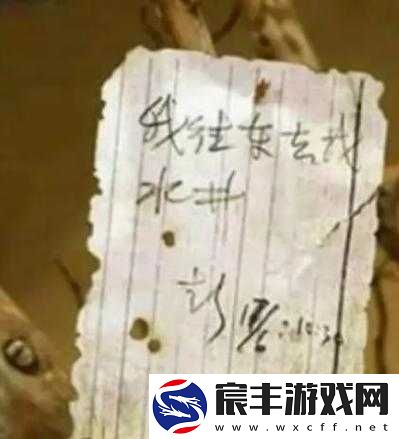 我往东去找
水井
彭
17/6:10:30
宸丰游戏网
www.wxcff.net